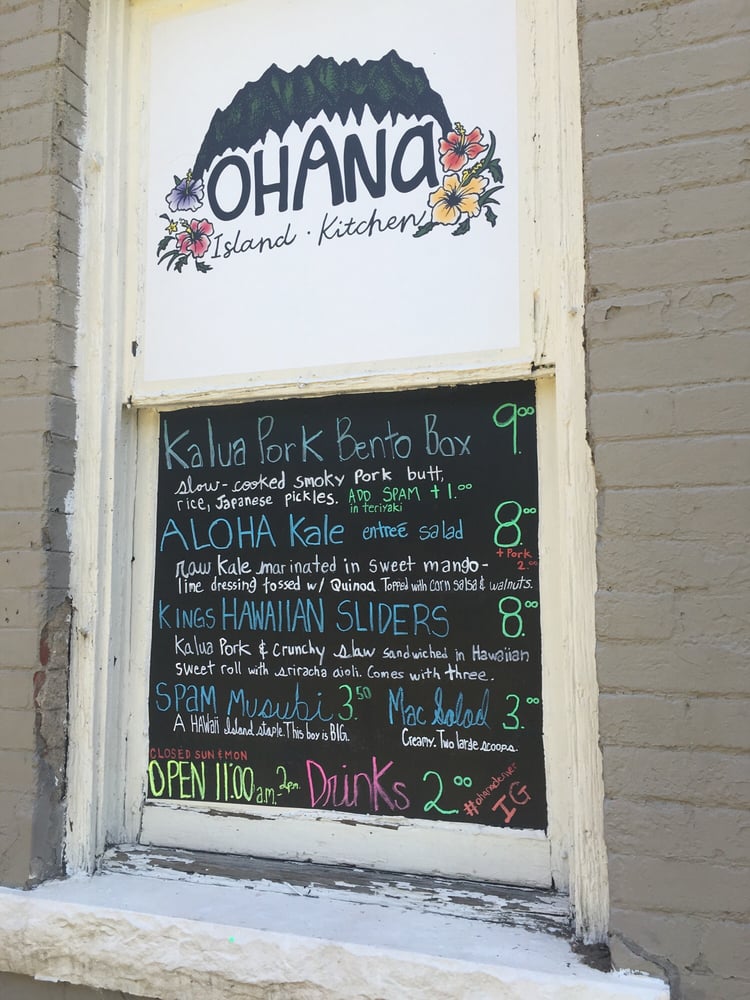 OHANA
Island · Kitchen
Kalua Pork Bento Box 9.00
slow-cooked smoky Pork butt,
rice, Japanese pickles. ADD SPAM +1.00
in teriyaki
ALOHA Kale entreé salad 8.00
+ Pork 2.00
raw Kale marinated in sweet mango-
lime dressing tossed w/ Quinoa. Topped with corn salsa & walnuts.
KINGS HAWAIIAN SLIDERS 8.00
Kalua Pork & crunchy slaw sandwiched in Hawaiian
sweet roll with sriracha aioli. Comes with three.
SPAM Musubi 3.50 Mac Salad 3.00
A HAWaii Island staple. This boy is BIG. Creamy. Two large scoops.
CLOSED SUN & MON
OPEN 11:00 a.m.-2pm. Drinks 2.00
#ohanadenver
IG